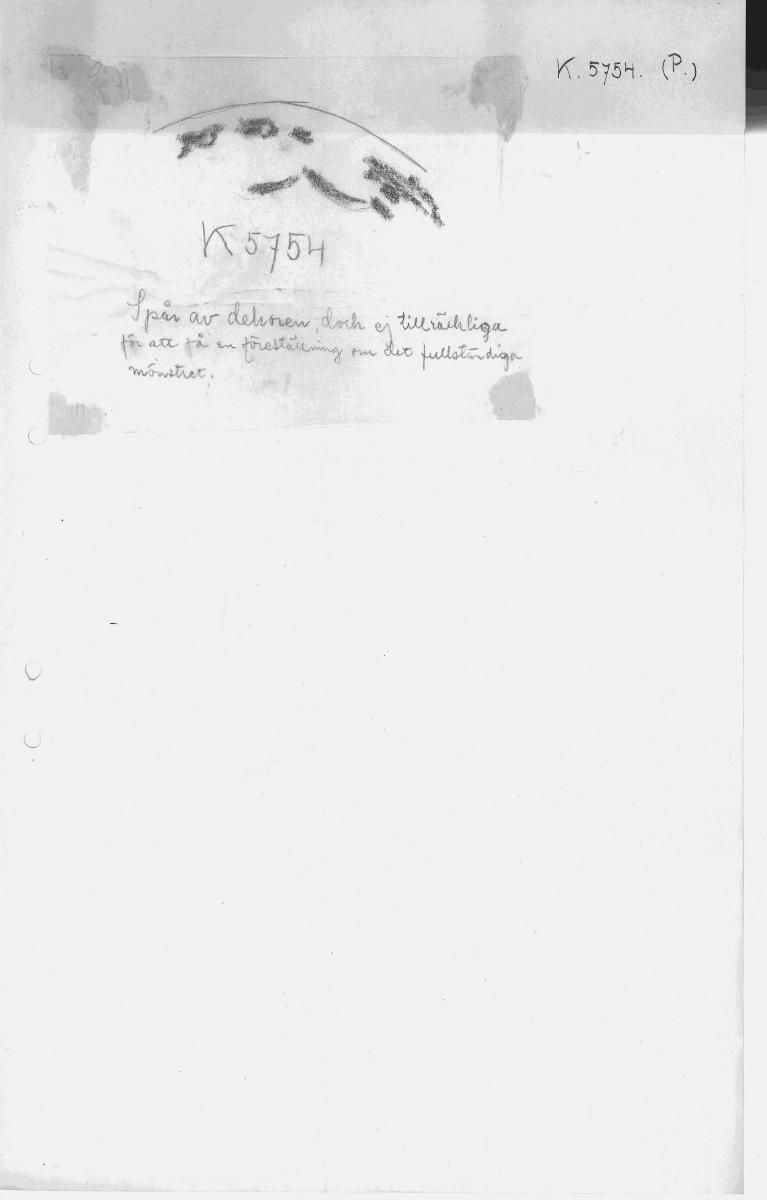 K. 5754. (P.)
K 5754
Spår av dekoren, doch ej tillräckliga
för att få en föreställning om det fullständiga
mönstret.